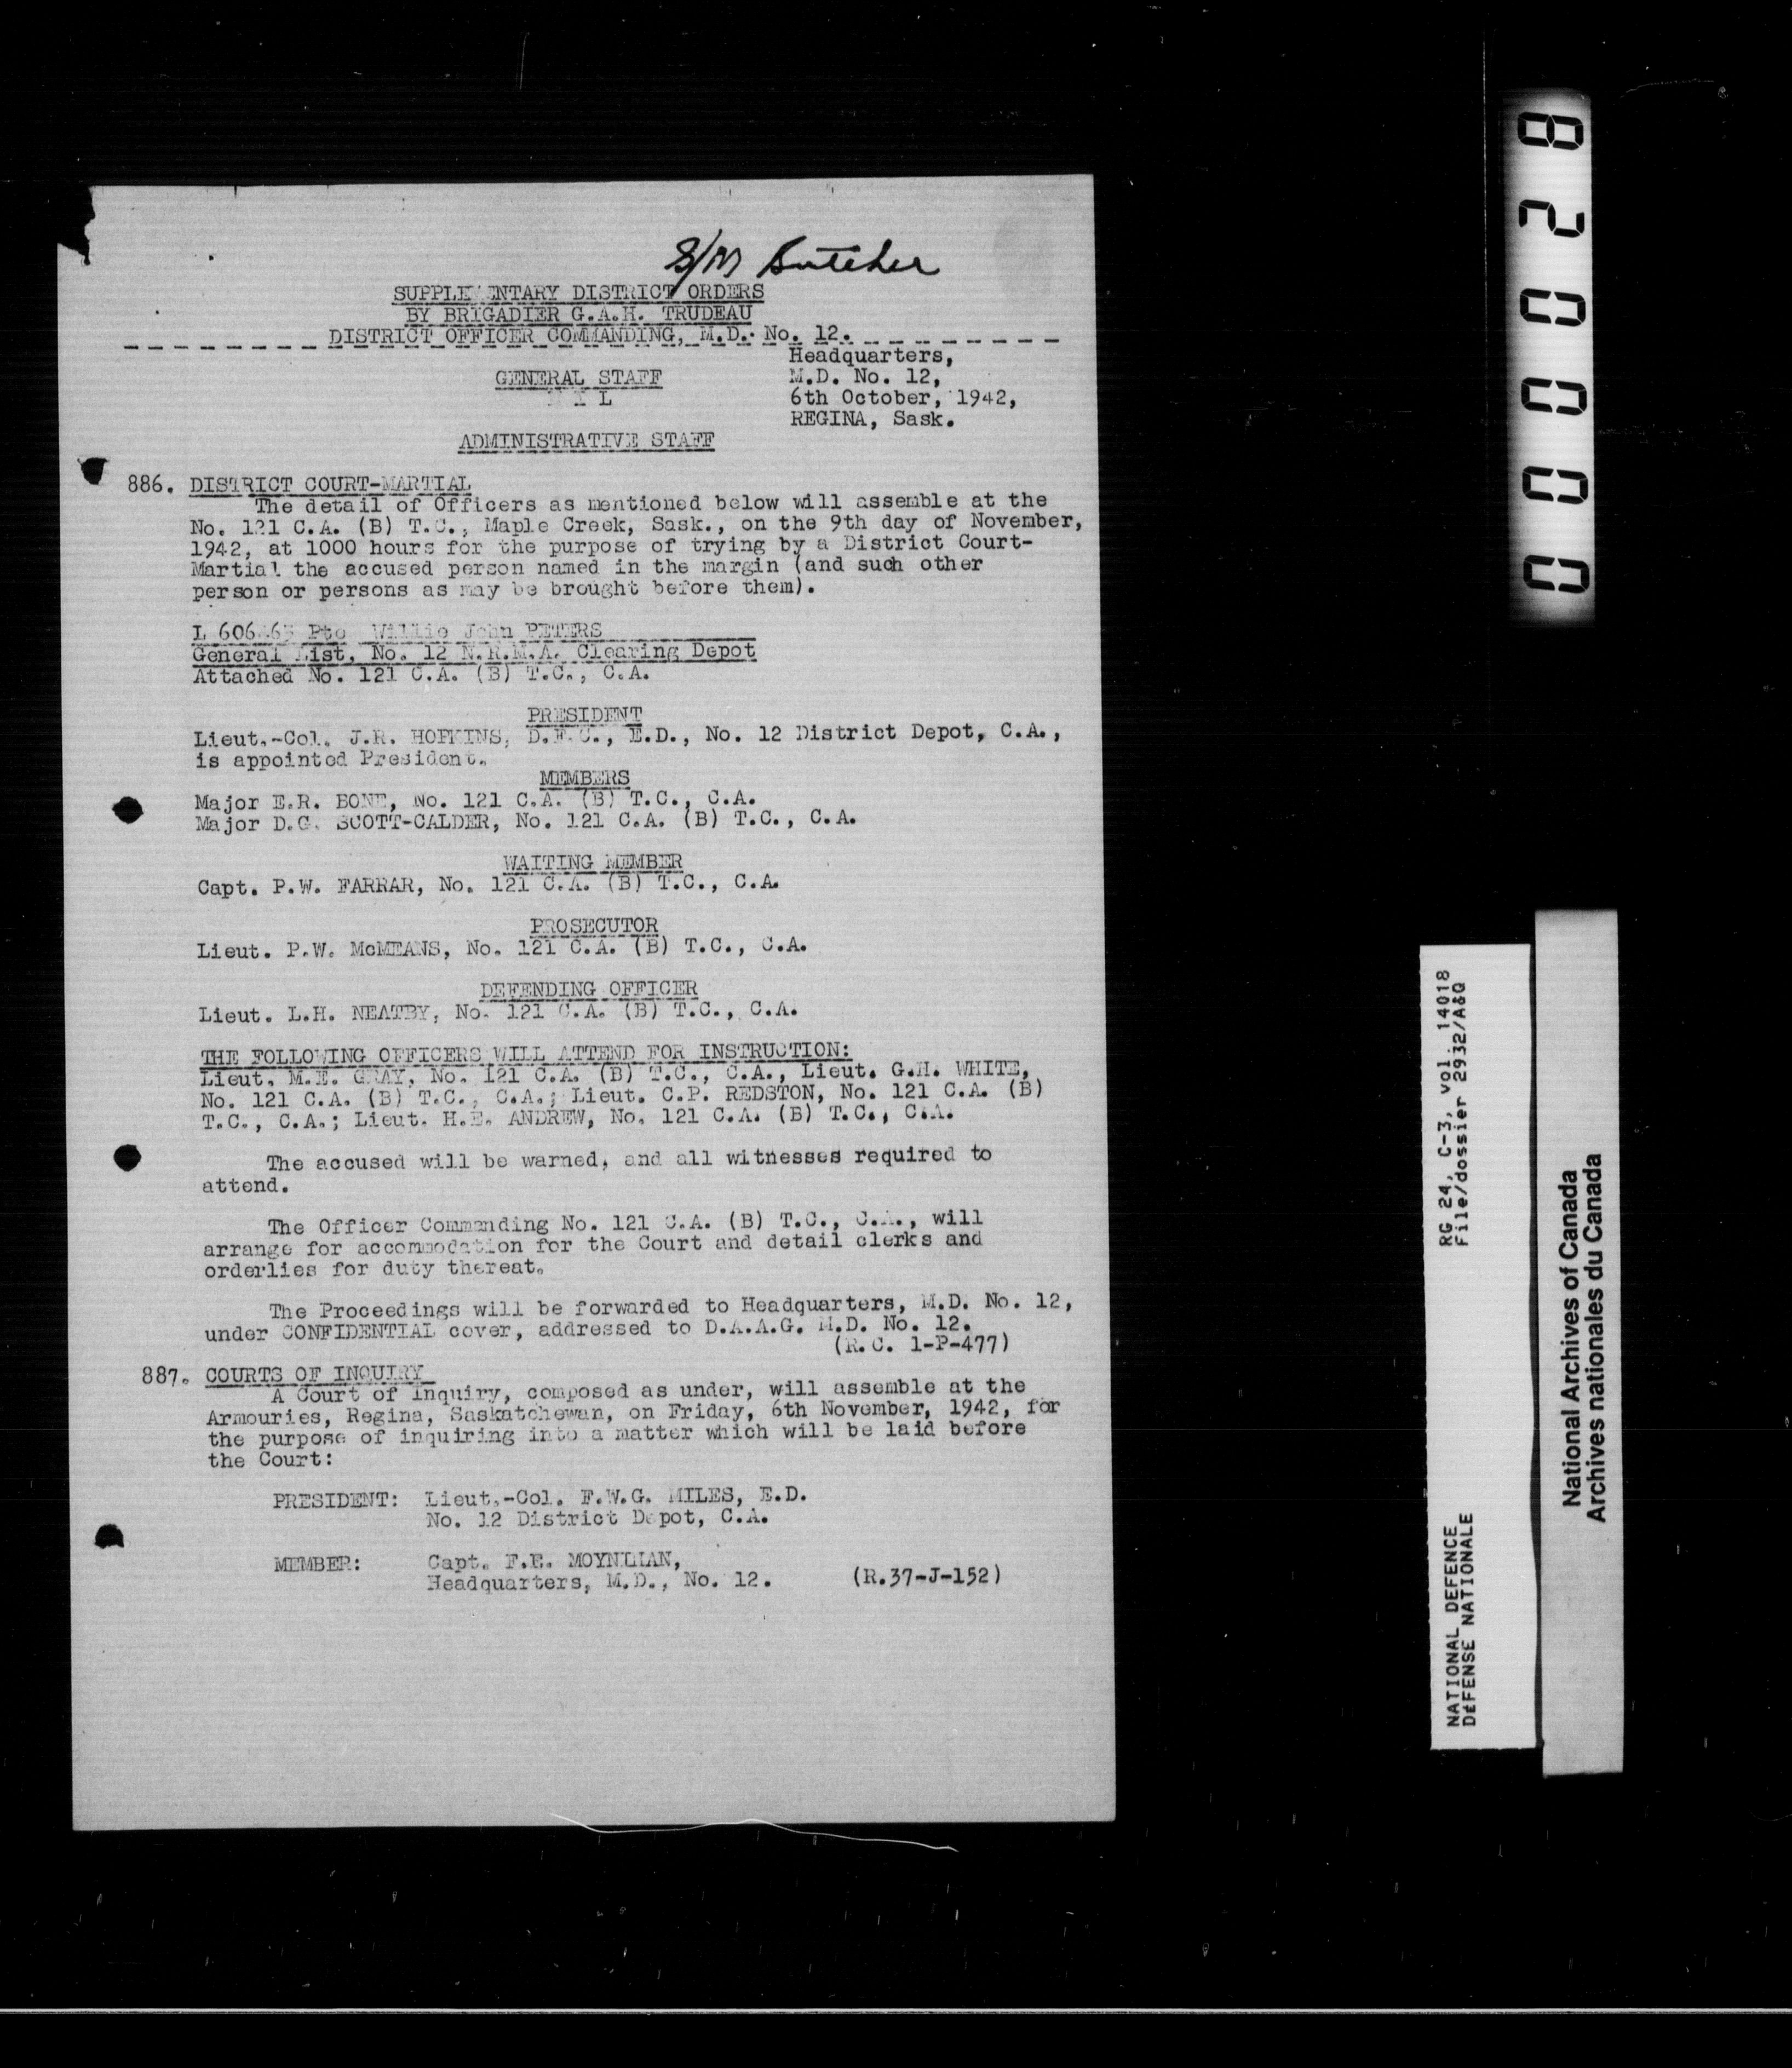 S/M Butcher
SUPPLEMENTARY DISTRICT ORDERS
BY BRIGADIER G.A.H. TRUDEAU
DISTRICT OFFICER COMMANDING, M.D. No. 12.
Headquarters,
GENERAL STAFF M.D. No. 12,
N I L 6th October, 1942,
REGINA, Sask.
ADMINISTRATIVE STAFF
886. DISTRICT COURT-MARTIAL
The detail of Officers as mentioned below will assemble at the
No. 121 C.A. (B) T.C., Maple Creek, Sask., on the 9th day of November,
1942, at 1000 hours for the purpose of trying by a District Court-
Martial the accused person named in the margin (and such other
person or persons as may be brought before them).
L Pte Willie John PETERS
General List, No. 12 N.R.M.A. Clearing Depot
Attached No. 121 C.A. (B) T.C., C.A.
PRESIDENT
Lieut.-Col. J.R. HOPKINS, D.F.C., E.D., No. 12 District Depot, C.A.,
is appointed President.
MEMBERS
Major E.R. BONE, No. 121 C.A. (B) T.C., C.A.
Major D.G. SCOTT-CALDER, No. 121 C.A. (B) T.C., C.A.
WAITING MEMBER
Capt. P.W. FARRAR, No. 121 C.A. (B) T.C., C.A.
PROSECUTOR
Lieut. P.W. McMEANS, No. 121 C.A. (B) T.C., C.A.
DEFENDING OFFICER
Lieut. L.H. NEATBY, No. 121 C.A. (B) T.C., C.A.
THE FOLLOWING OFFICERS WILL ATTEND FOR INSTRUCTION:
Lieut. M.E. GRAY, No. 121 C.A. (B) T.C., C.A., Lieut. G.H. WHITE,
No. 121 C.A. (B) T.C., C.A.; Lieut. C.P. REDSTON, No. 121 C.A. (B)
T.C., C.A.; Lieut. H.E. ANDREW, No. 121 C.A. (B) T.C., C.A.
The accused will be warned, and all witnesses required to
attend.
The Officer Commanding No. 121 C.A. (B) T.C., C.A., will
arrange for accommodation for the Court and detail clerks and
orderlies for duty thereat.
The Proceedings will be forwarded to Headquarters, M.D. No. 12,
under CONFIDENTIAL cover, addressed to D.A.A.G. M.D. No. 12.
(R.C. 1-P-477)
887. COURTS OF INQUIRY
A Court of Inquiry, composed as under, will assemble at the
Armouries, Regina, Saskatchewan, on Friday, 6th November, 1942, for
the purpose of inquiring into a matter which will be laid before
the Court:
PRESIDENT: Lieut.-Col. F.W.G. MILES, E.D.
No. 12 District Depot, C.A.
MEMBER: Capt. F.E.
Headquarters, M.D., No. 12. (R.37-J-152)
000028
RG 24, C-3, vol. 14018
File/dossier 2932/A&Q
NATIONAL DEFENCE
DéFENSE NATIONALE
National Archives of Canada
Archives nationales du Canada